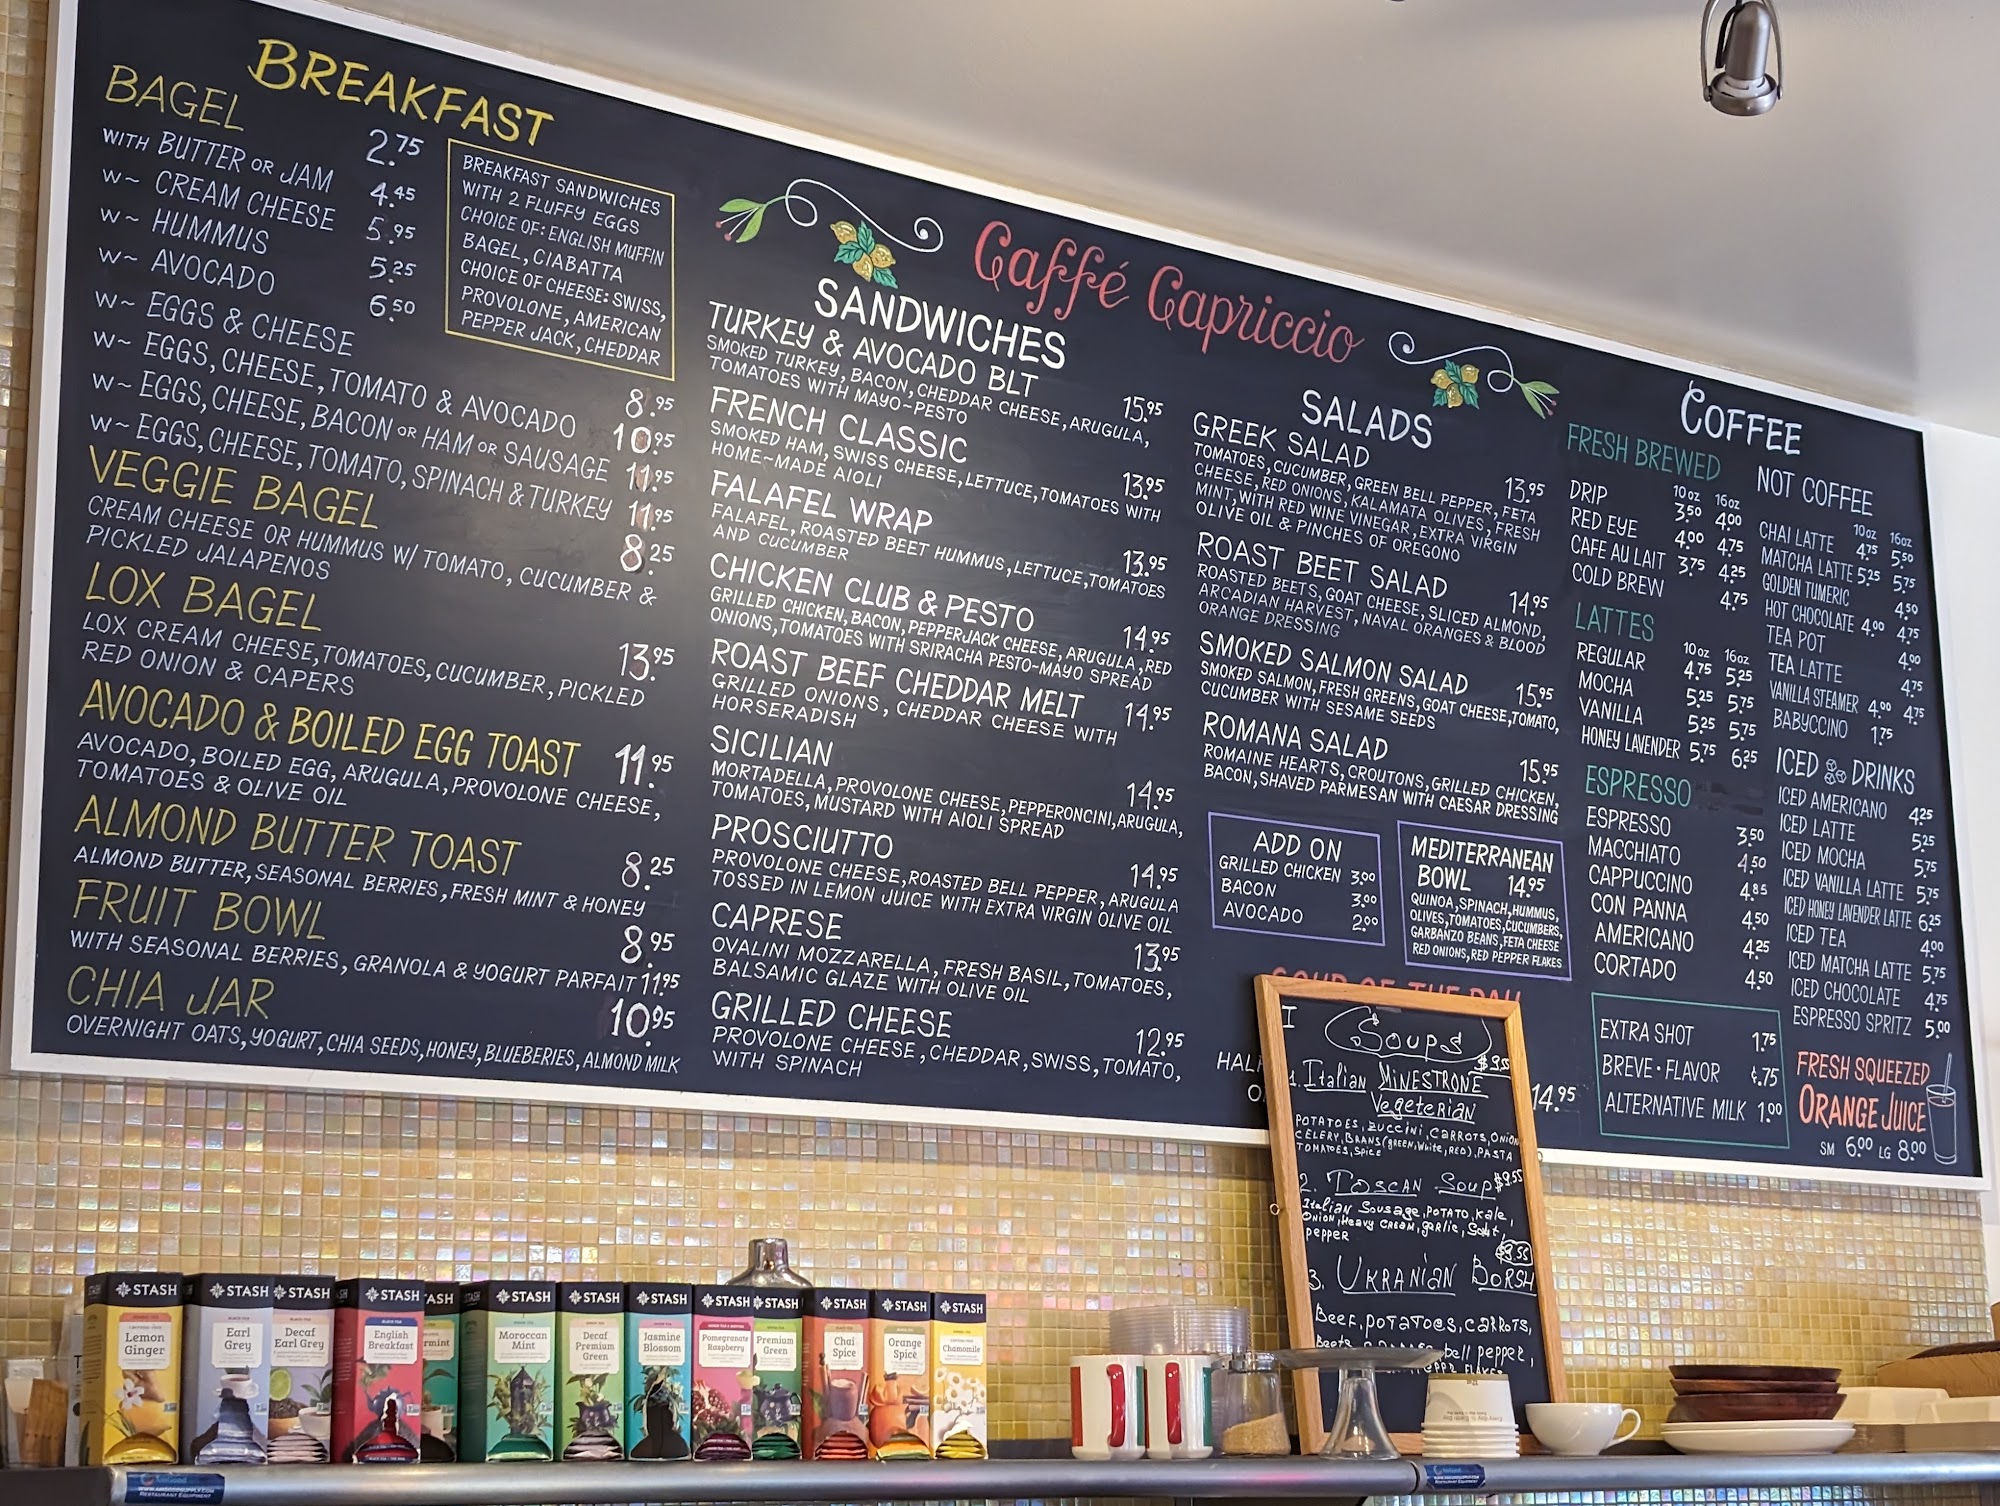 BREAKFAST
BAGEL 2.75
WITH BUTTER OR JAM 4.45
W~ CREAM CHEESE 5.95
W~ HUMMUS 5.25
W~ AVOCADO 6.50
W~ EGGS & CHEESE 8.95
W~ EGGS, CHEESE, TOMATO & AVOCADO 10.95
W~ EGGS, CHEESE, BACON OR HAM OR SAUSAGE 11.95
W~ EGGS, CHEESE, TOMATO, SPINACH & TURKEY 11.95
BREAKFAST SANDWICHES
WITH 2 FLUFFY EGGS
CHOICE OF: ENGLISH MUFFIN
BAGEL, CIABATTA
CHOICE OF CHEESE: SWISS,
PROVOLONE, AMERICAN
PEPPER JACK, CHEDDAR
VEGGIE BAGEL 8.25
CREAM CHEESE OR HUMMUS W/ TOMATO, CUCUMBER &
PICKLED JALAPENOS
LOX BAGEL 13.95
LOX CREAM CHEESE, TOMATOES, CUCUMBER, PICKLED
RED ONION & CAPERS
AVOCADO & BOILED EGG TOAST 11.95
AVOCADO, BOILED EGG, ARUGULA, PROVOLONE CHEESE,
TOMATOES & OLIVE OIL
ALMOND BUTTER TOAST 8.25
ALMOND BUTTER, SEASONAL BERRIES, FRESH MINT & HONEY
FRUIT BOWL 8.95
WITH SEASONAL BERRIES, GRANOLA & YOGURT PARFAIT 11.95
CHIA JAR 10.95
OVERNIGHT OATS, YOGURT, CHIA SEEDS, HONEY, BLUEBERIES, ALMOND MILK
Caffé Capriccio
SANDWICHES
TURKEY & AVOCADO BLT 15.95
SMOKED TURKEY, BACON, CHEDDAR CHEESE, ARUGULA,
TOMATOES WITH MAYO~PESTO
FRENCH CLASSIC 13.95
SMOKED HAM, SWISS CHEESE, LETTUCE, TOMATOES WITH
HOME~MADE AIOLI
FALAFEL WRAP 13.95
FALAFEL, ROASTED BEET HUMMUS, LETTUCE, TOMATOES
AND CUCUMBER
CHICKEN CLUB & PESTO 14.95
GRILLED CHICKEN, BACON, PEPPERJACK CHEESE, ARUGULA, RED
ONIONS, TOMATOES WITH SRIRACHA PESTO-MAYO SPREAD
ROAST BEEF CHEDDAR MELT 14.95
GRILLED ONIONS, CHEDDAR CHEESE WITH
HORSERADISH
SICILIAN 14.95
MORTADELLA, PROVOLONE CHEESE, PEPPERONCINI, ARUGULA,
TOMATOES, MUSTARD WITH AIOLI SPREAD
PROSCIUTTO 14.95
PROVOLONE CHEESE, ROASTED BELL PEPPER, ARUGULA
TOSSED IN LEMON JUICE WITH EXTRA VIRGIN OLIVE OIL
CAPRESE 13.95
OVALINI MOZZARELLA, FRESH BASIL, TOMATOES,
BALSAMIC GLAZE WITH OLIVE OIL
GRILLED CHEESE 12.95
PROVOLONE CHEESE, CHEDDAR, SWISS, TOMATO,
WITH SPINACH
SALADS
GREEK SALAD 13.95
TOMATOES, CUCUMBER, GREEN BELL PEPPER, FETA
CHEESE, RED ONIONS, KALAMATA OLIVES, FRESH
MINT, WITH RED WINE VINEGAR, EXTRA VIRGIN
OLIVE OIL & PINCHES OF OREGONO
ROAST BEET SALAD 14.95
ROASTED BEETS, GOAT CHEESE, SLICED ALMOND,
ARCADIAN HARVEST, NAVAL ORANGES & BLOOD
ORANGE DRESSING
SMOKED SALMON SALAD 15.95
SMOKED SALMON, FRESH GREENS, GOAT CHEESE, TOMATO,
CUCUMBER WITH SESAME SEEDS
ROMANA SALAD 15.95
ROMAINE HEARTS, CROUTONS, GRILLED CHICKEN,
BACON, SHAVED PARMESAN WITH CAESAR DRESSING
ADD ON
GRILLED CHICKEN 3.00
BACON 3.00
AVOCADO 2.00
MEDITERRANEAN
BOWL 14.95
QUINOA, SPINACH, HUMMUS,
OLIVES, TOMATOES, CUCUMBERS,
GARBANZO BEANS, FETA CHEESE
RED ONIONS, RED PEPPER FLAKES
SOUP OF THE DAY
HAL
14.95
Soups
$9.55
1. Italian MINESTRONE
Vegeterian
POTATOES, ZUCCINI, CARROTS, ONION
CELERY, BEANS (green, white, RED), PASTA
TOMATOES, SPICE
2. TOSCAN Soup $9.55
Italian Sousage, POTATO, Kale,
ONION, Heavy CREAM, garlic, Salt,
pepper
$9.55
3. UKRANIAN BORSH
Beef, POTATOES, CARROTS,
Beets bell pepper,
COFFEE
FRESH BREWED
10oz 16oz
DRIP 3.50 4.00
RED EYE 4.00 4.75
CAFE AU LAIT 3.75 4.25
COLD BREW 4.75
LATTES
10oz 16oz
REGULAR 4.75 5.25
MOCHA 5.25 5.75
VANILLA 5.25 5.75
HONEY LAVENDER 5.75 6.25
ESPRESSO
ESPRESSO 3.50
MACCHIATO 4.50
CAPPUCCINO 4.85
CON PANNA 4.50
AMERICANO 4.25
CORTADO 4.50
EXTRA SHOT 1.75
BREVE • FLAVOR ¢.75
ALTERNATIVE MILK 1.00
NOT COFFEE
10oz 16oz
CHAI LATTE 4.75 5.50
MATCHA LATTE 5.25 5.75
GOLDEN TUMERIC 4.50
HOT CHOCOLATE 4.00 4.75
TEA POT 4.00
TEA LATTE 4.75
VANILLA STEAMER 4.00 4.75
BABYCCINO 1.75
ICED DRINKS
ICED AMERICANO 4.25
ICED LATTE 5.25
ICED MOCHA 5.75
ICED VANILLA LATTE 5.75
ICED HONEY LAVENDER LATTE 6.25
ICED TEA 4.00
ICED MATCHA LATTE 5.75
ICED CHOCOLATE 4.75
ESPRESSO SPRITZ 5.00
FRESH SQUEEZED
ORANGE JUICE
SM 6.00 LG 8.00
STASH Lemon Ginger
STASH Earl Grey
STASH Decaf Earl Grey
STASH English Breakfast
STASH
STASH Moroccan Mint
STASH Decaf Premium Green
STASH Jasmine Blossom
STASH Pomegranate Raspberry
STASH Premium Green
STASH Chai Spice
STASH Orange Spice
STASH Chamomile
RESTAURANT EQUIPMENT